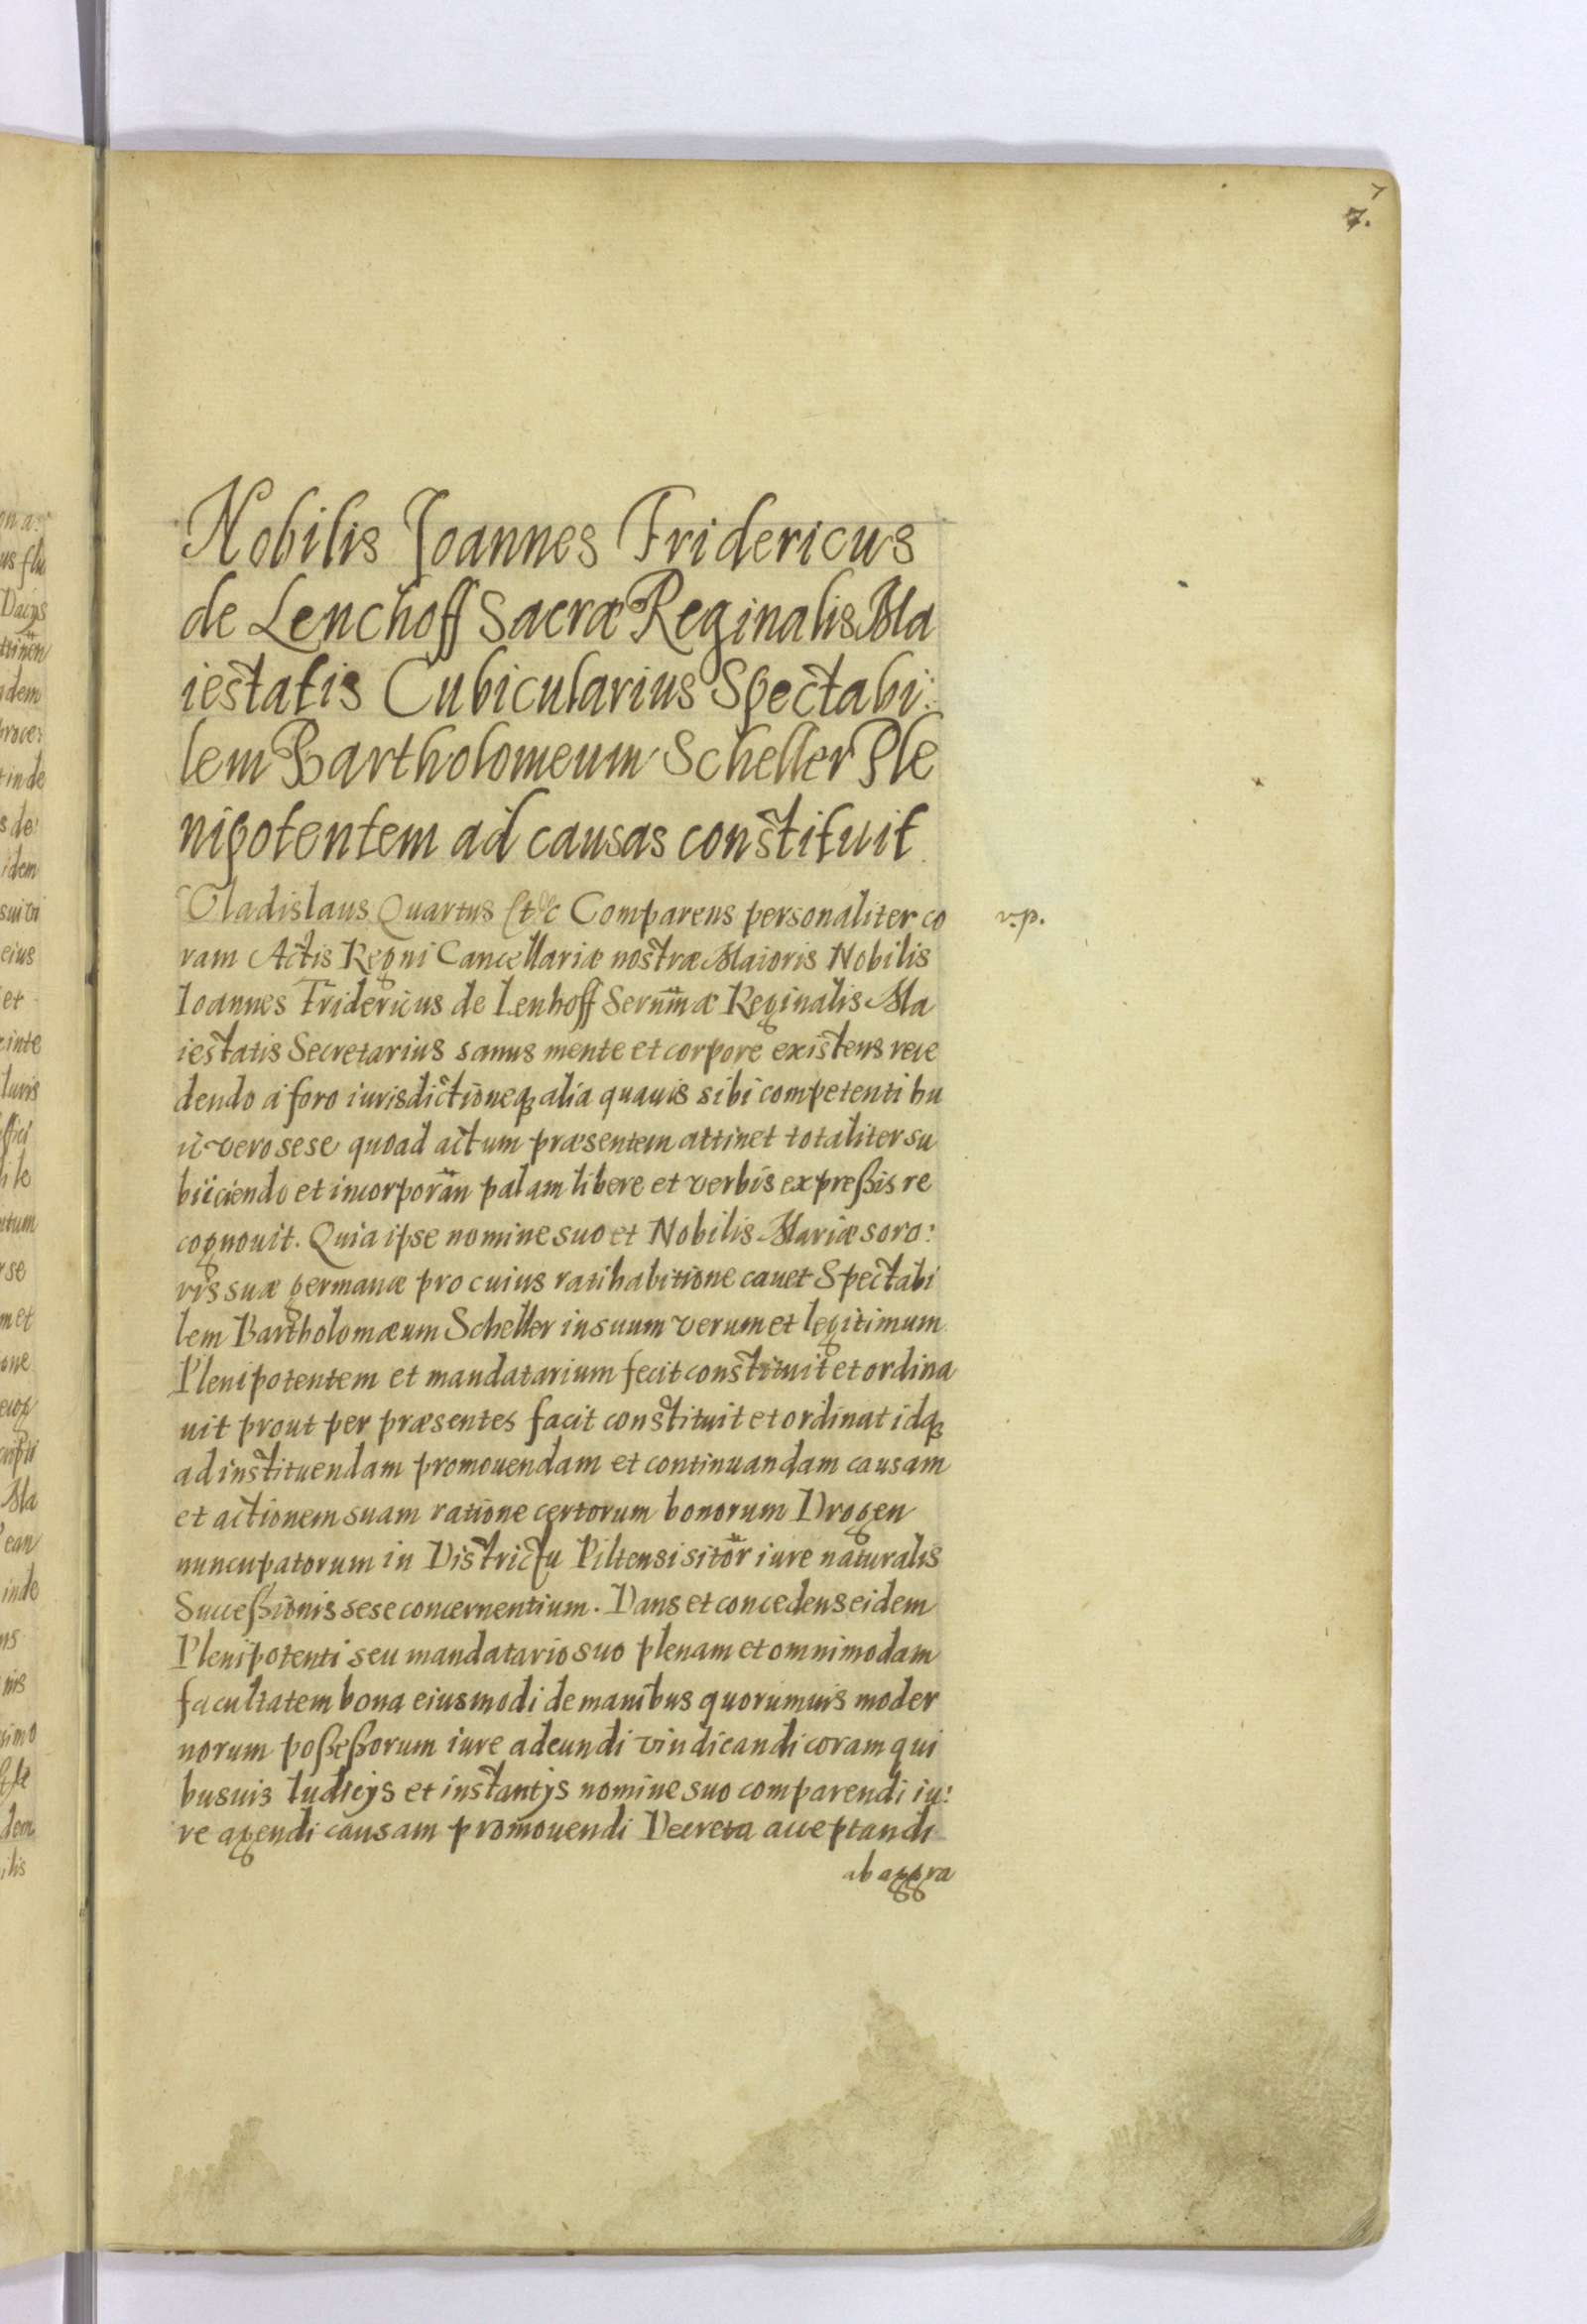 7
7.
Nobilis Joannes Fridericus
de Lenchoff Sacræ Reginalis Ma
iestatis Cubicularius Spectabi:
lem Bartholomeum Scheller Ple
nipotentem ad causas constituit
Vladislaus Quartus etc Comparens personaliter co
v.p.
ram Actis Regni Cancellariæ nostræ Maioris Nobilis
Ioannes Fridericus de Lenhoff Sernmæ Reginalis Ma
iestatis Secretarius sanus mente et corpore existens rece
dendo a foro iurisdictioneq3 alia quauis sibi competenti hu
ic vero sese quoad actum præsentem attinet totaliter su
biiciendo et incorporan palam libere et verbis expreßis re
cognouit. Quia ipse nomine suo et Nobilis Mariæ soro:
ris suæ germanæ pro cuius ratihabitione cauet Spectabi
lem Bartholomæum Scheller in suum verum et legitimum
Plenipotentem et mandatarium fecit constituit et ordina
uit prout per præsentes facit constituit et ordinat idq3
ad instituendam promouendam et continuandam causam
et actionem suam ratione certorum bonorum Drogen
nuncupatorum in Districtu Piltensi sitor iure naturalis
Succeßionis sese concernentium. Dans et concedens eidem
Plenipotenti seu mandatario suo plenam et omnimodam
facultatem bona eiusmodi de manibus quorumuis moder
norum poßeßorum iure adeundi vindicandi coram qui
busuis Iudicÿs et instantÿs nomine suo comparendi iu:
re agendi causam promouendi Decreta acceptandi
ab aggra